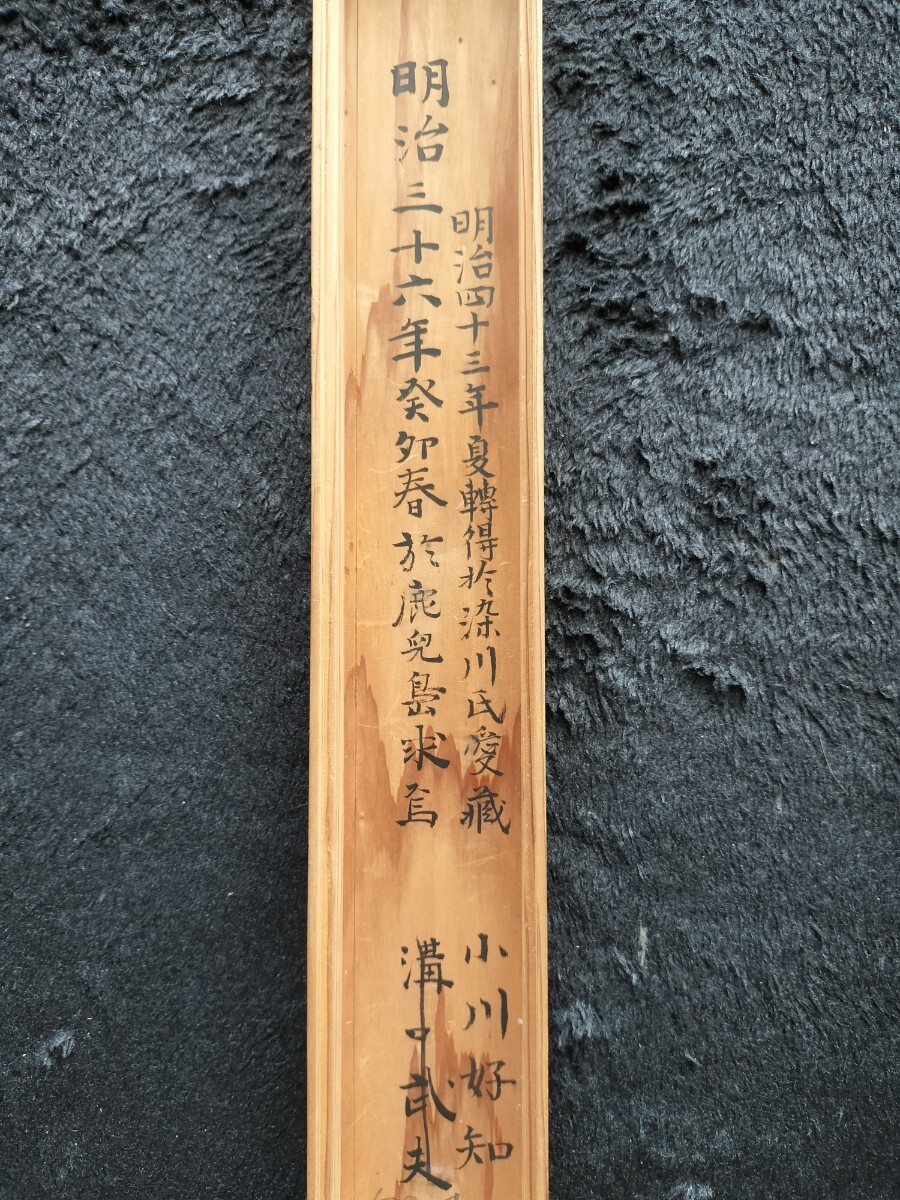 明治四十三年夏轉得於染川氏愛藏
小川好知
明治三十六年癸卯春於鹿兒島求焉
溝口武夫